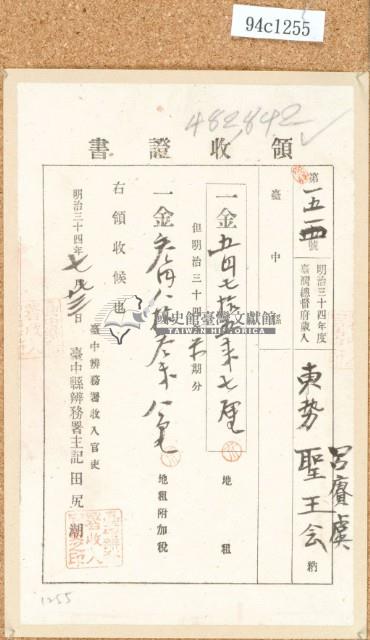 94c1255
482842
領收證書
第一五一四號
明治三十四年度
臺灣總督府歲入
臺中縣
東勢
呂賡虞
聖王会
納
一金五円七拾五錢七厘
地租
但明治三十四年
期分
地租附加稅
右領收候也
明治三十四年七月廿三日
臺中辨務署收入官吏
臺中縣辨務署主記田尻潮
國史館臺灣文獻館
1255